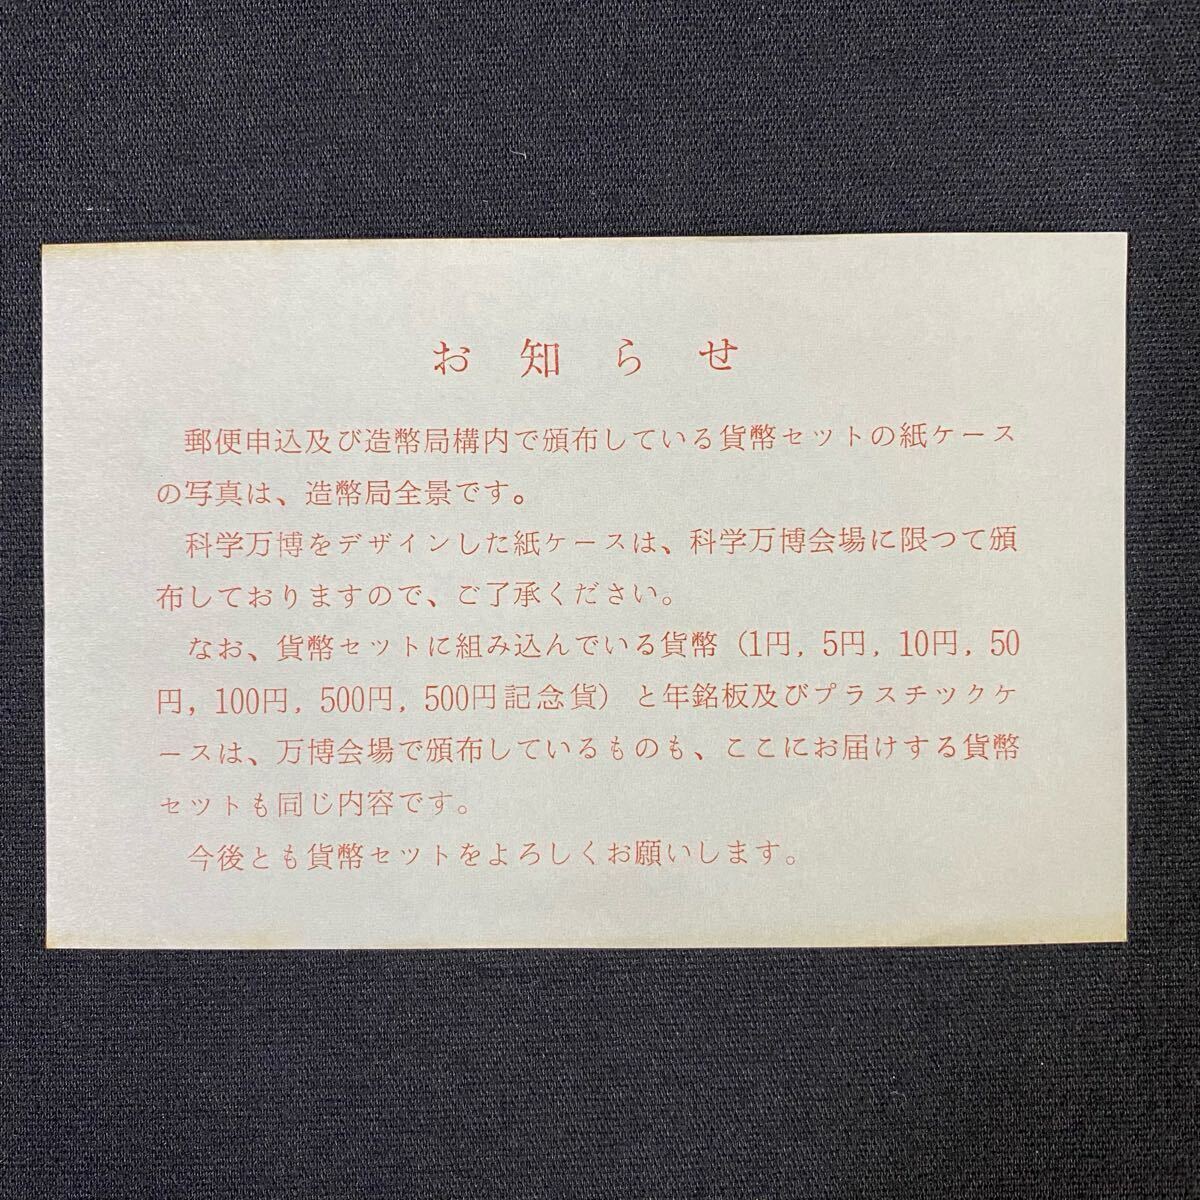 お知らせ
郵便申込及び造幣局構内で頒布している貨幣セットの紙ケース
の写真は、造幣局全景です。
科学万博をデザインした紙ケースは、科学万博会場に限つて頒
布しておりますので、ご了承ください。
なお、貨幣セットに組み込んでいる貨幣（1円, 5円, 10円, 50
円, 100円, 500円, 500円記念貨）と年銘板及びプラスチツクケ
ースは、万博会場で頒布しているものも、ここにお届けする貨幣
セットも同じ内容です。
今後とも貨幣セットをよろしくお願いします。